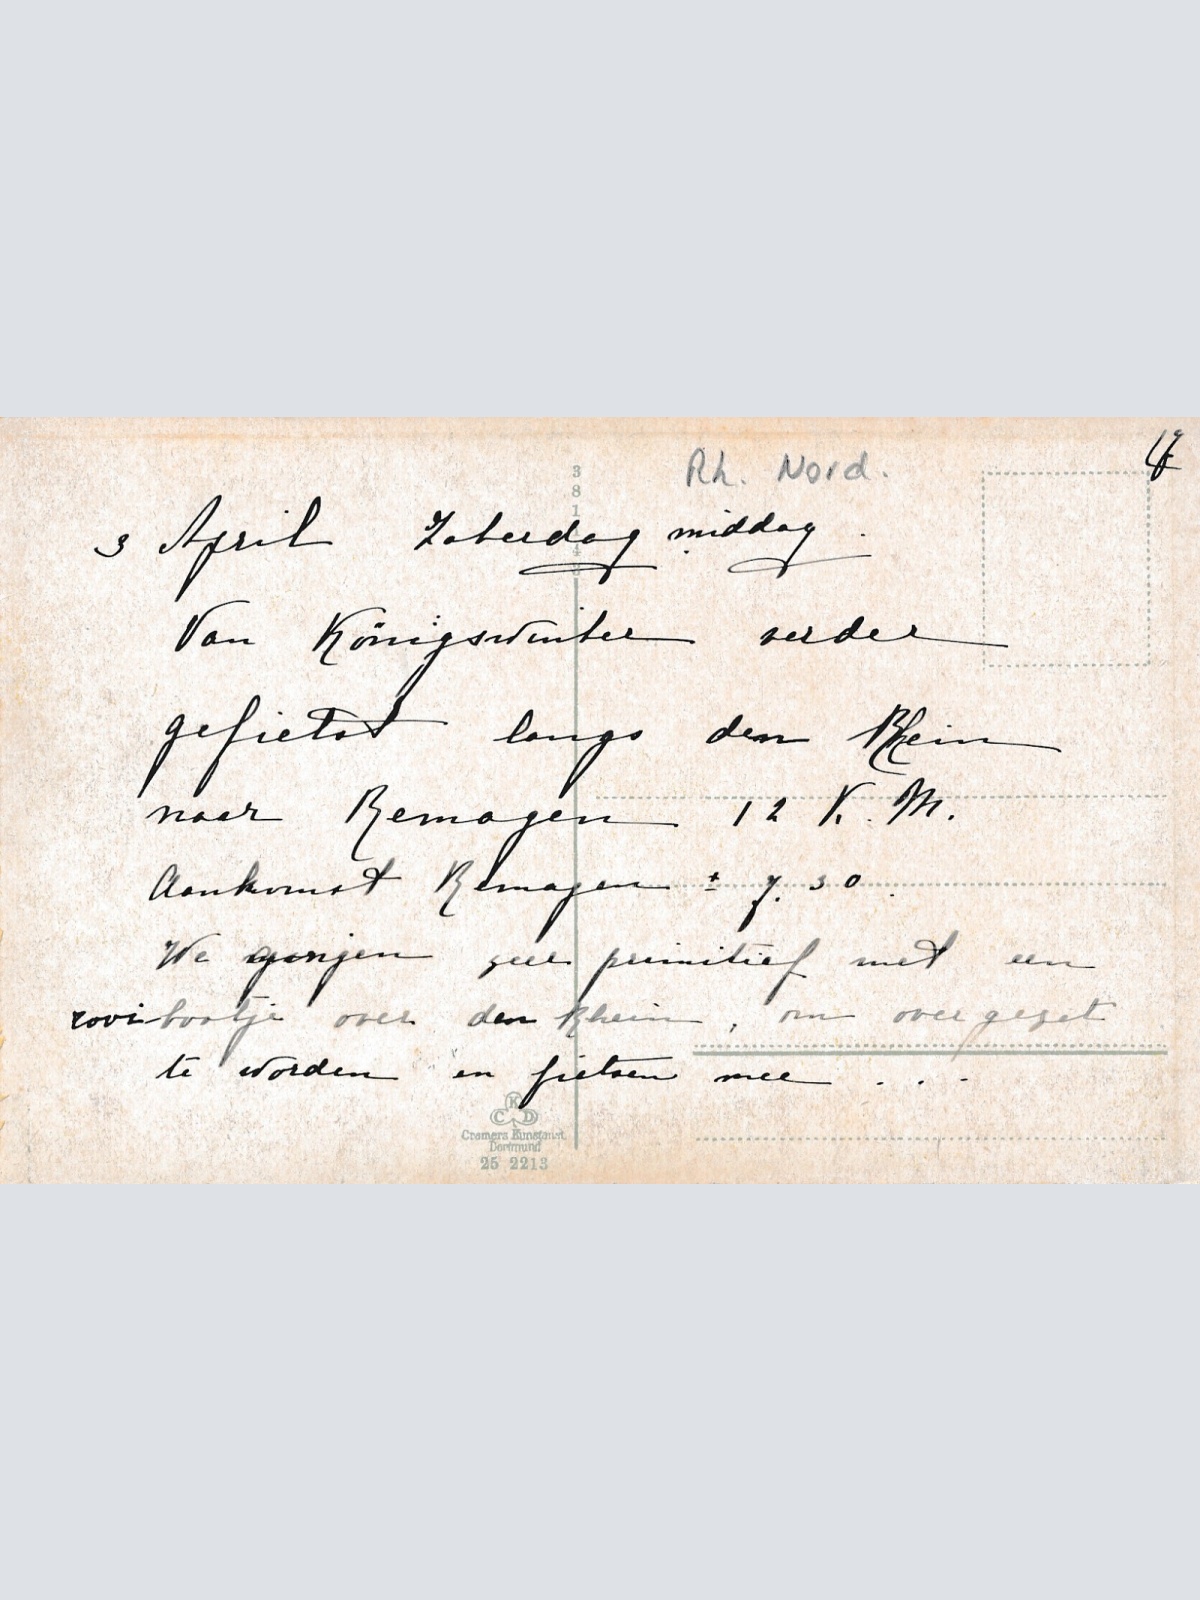 Rh. Nord.
3 April Zaterdag middag.
Van Königswinter verder
gefietst langs den Rhein
naar Remagen 12 K.M.
Aankomst Remagen ± 7.30.
We gingen zeer primitief met een
roeibootje over den Rhein, om overgezet
te worden en fietsen mee ...
K
C D
Cramers Kunstanst.
Dortmund
25 2213